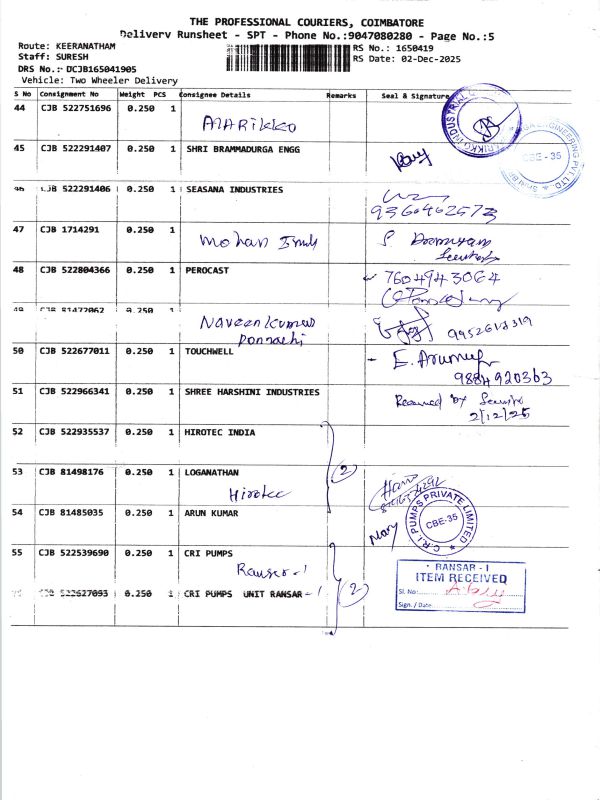 THE PROFESSIONAL COURIERS, COIMBATORE
Delivery Runsheet - SPT - Phone No.:9047080280 - Page No.:5
Route: KEERANATHAM
RS No.: 1650419
Staff: SURESH
RS Date: 02-Dec-2025
DRS No.:- DCJB165041905
Vehicle: Two Wheeler Delivery
S No Consignment No Weight PCS Consignee Details Remarks Seal & Signature
44 CJB 522751696 0.250 1
45 CJB 522291407 0.250 1 SHRI BRAMMADURGA ENGG
CBE - 35
CJB 522291406 0.250 1 SEASANA INDUSTRIES
9360462573
47 CJB 1714291 0.250 1 Mohan
48 CJB 522804366 0.250 1 PEROCAST
7604943064
49 CJB 81472062 0.250 1
Naveen Kumar
9952618319
50 CJB 522677011 0.250 1 TOUCHWELL
9884920363
51 CJB 522966341 0.250 1 SHREE HARSHINI INDUSTRIES
Received by
2/12/25
52 CJB 522935537 0.250 1 HIROTEC INDIA
53 CJB 81498176 0.250 1 LOGANATHAN
2
Hirotec
54 CJB 81485035 0.250 1 ARUN KUMAR
C.R.I PUMPS PRIVATE LIMITED
CBE-35
55 CJB 522539690 0.250 1 CRI PUMPS
Ranser-1
RANSAR - I
ITEM RECEIVED
CJB 522627093 0.250 1 CRI PUMPS UNIT RANSAR -1
2
Sl. No:
Sign. / Date